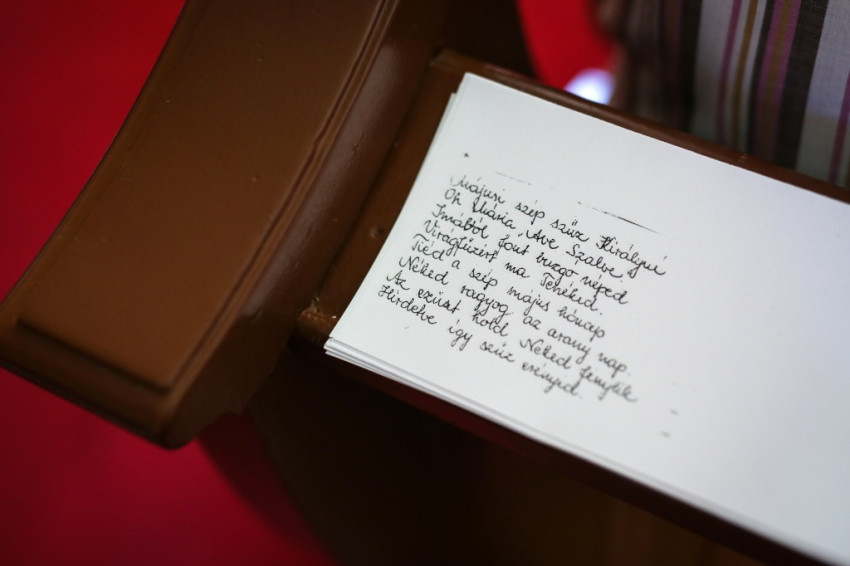 Májusi szép szűz Királyné
Óh Mária, Ave Szalve,
Imából font buzgó néped
Virágfüzért ma Tenéked.
Tiéd a szép május hónap
Néked ragyog az arany nap.
Az ezüst hold Néked fénylik
Hirdetve így szűz erényid.